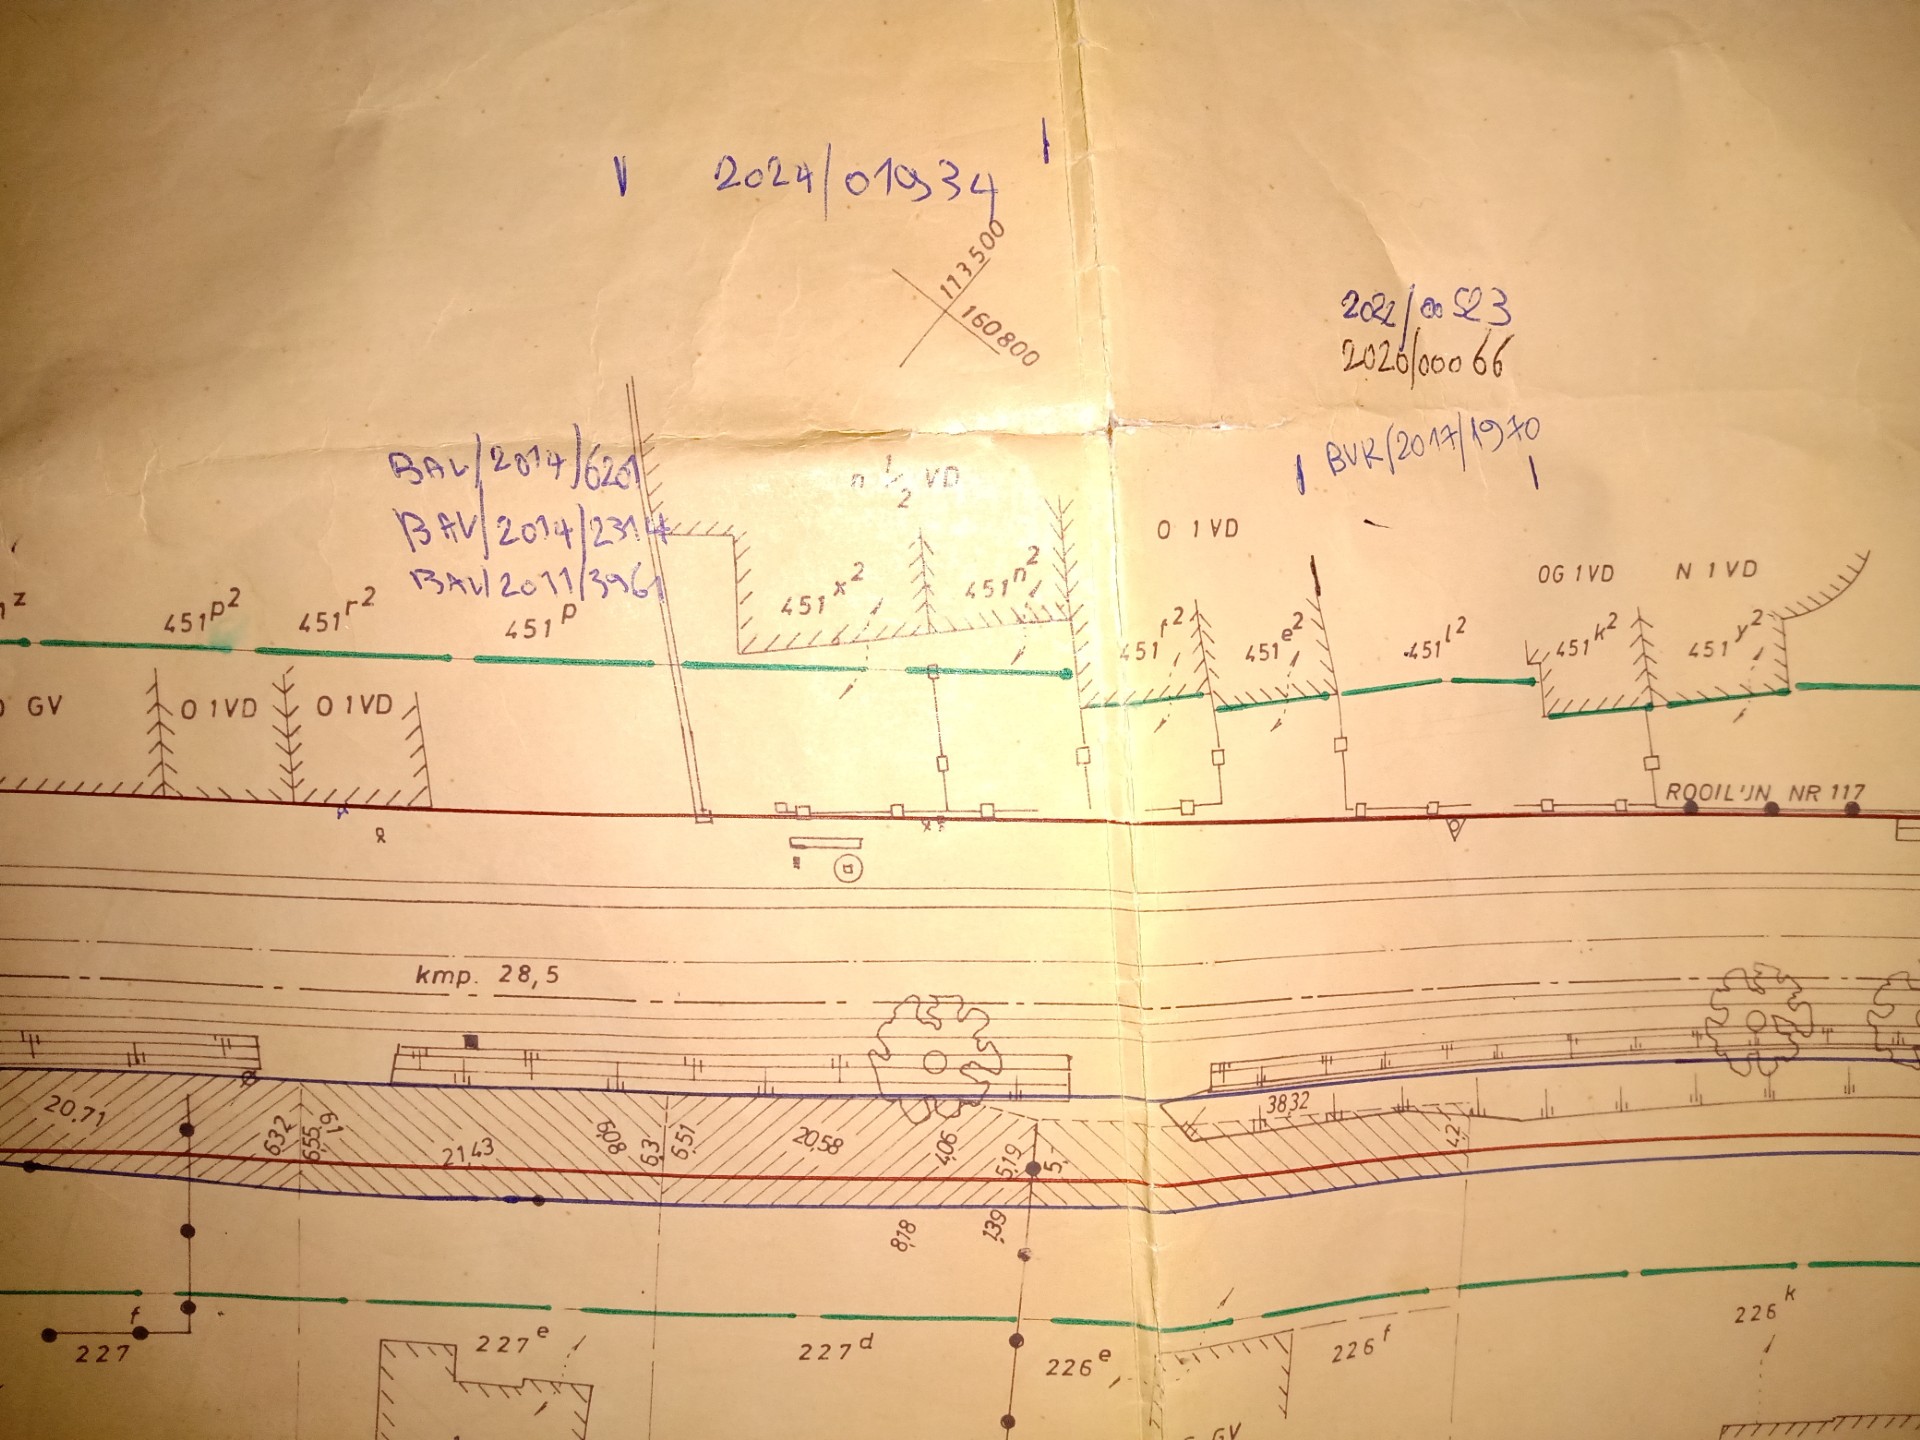 2024/01934
113.500
160800
2022/00523
2020/00066
BVR/2017/1970
BAV/2014/6201
BAV/2014/2314
BAV/2011/3961
n 1/2 VD
O 1VD
OG 1VD
N 1VD
451p2
451r2
451p
451x2
451n2
451e2
451l2
451k2
451y2
GV
O 1VD
O 1VD
ROOIL'JN NR 117
kmp. 28,5
20.71
6.32
6.55
21,43
6.3
6.51
20,58
4,06
5,19
38,32
8,18
1,39
227
f
227e
227d
226e
226f
226k
GV